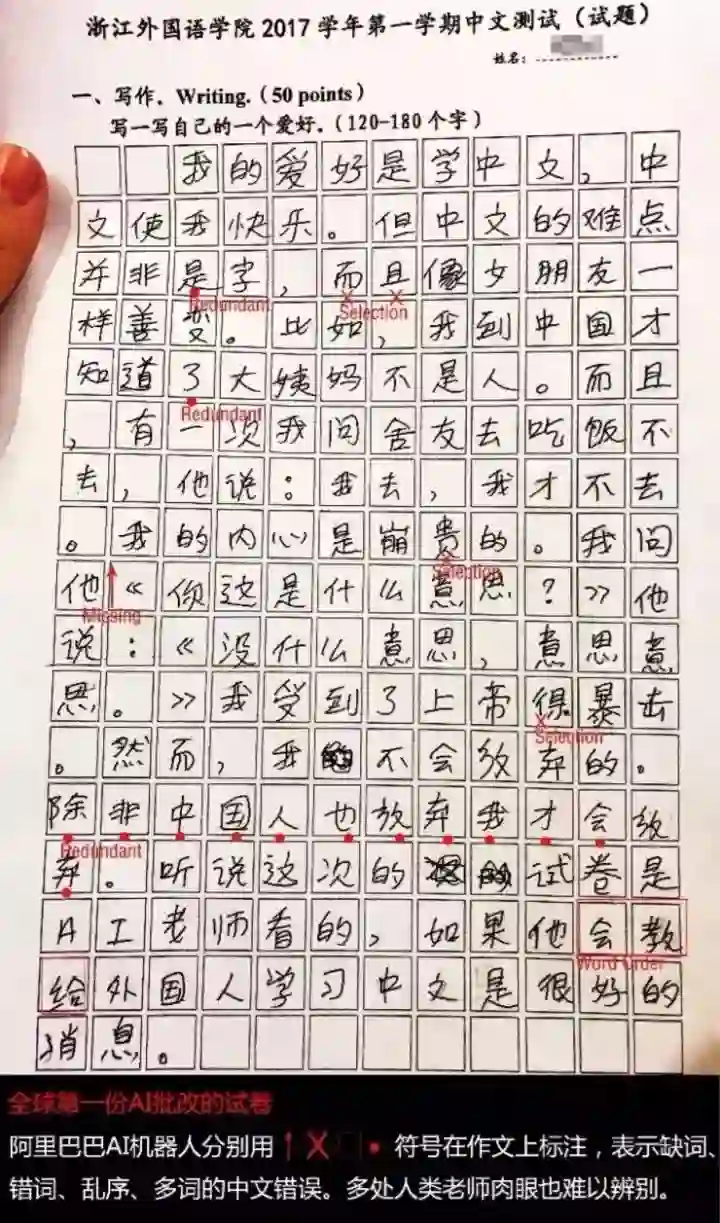 浙江外国语学院 2017 学年第一学期中文测试（试题）
姓名：
一、写作. Writing.（50 points）
写一写自己的一个爱好.（120-180 个字）
我的爱好是学中文，中
文使我快乐。但中文的难点
并非是字，而且像女朋友一
Redundant Selection
样善变。比如，我到中国才
知道了大姨妈不是人。而且
Redundant
，有一次我问舍友去吃饭不
去，他说：我去，我才不去
。我的内心是崩贵的。我问
Selection
他《你这是什么意思？》他
Missing
说：《没什么意思，意思意
思。》我受到了上帝得暴击
Selection
。然而，我不会放弃的。
除非中国人也放弃我才会放
Redundant
弃。听说这次的试卷是
AI老师看的，如果他会教
Word Order
给外国人学习中文是很好的
消息。
全球第一份AI批改的试卷
阿里巴巴AI机器人分别用 ↑ X □ • 符号在作文上标注，表示缺词、
错词、乱序、多词的中文错误。多处人类老师肉眼也难以辨别。